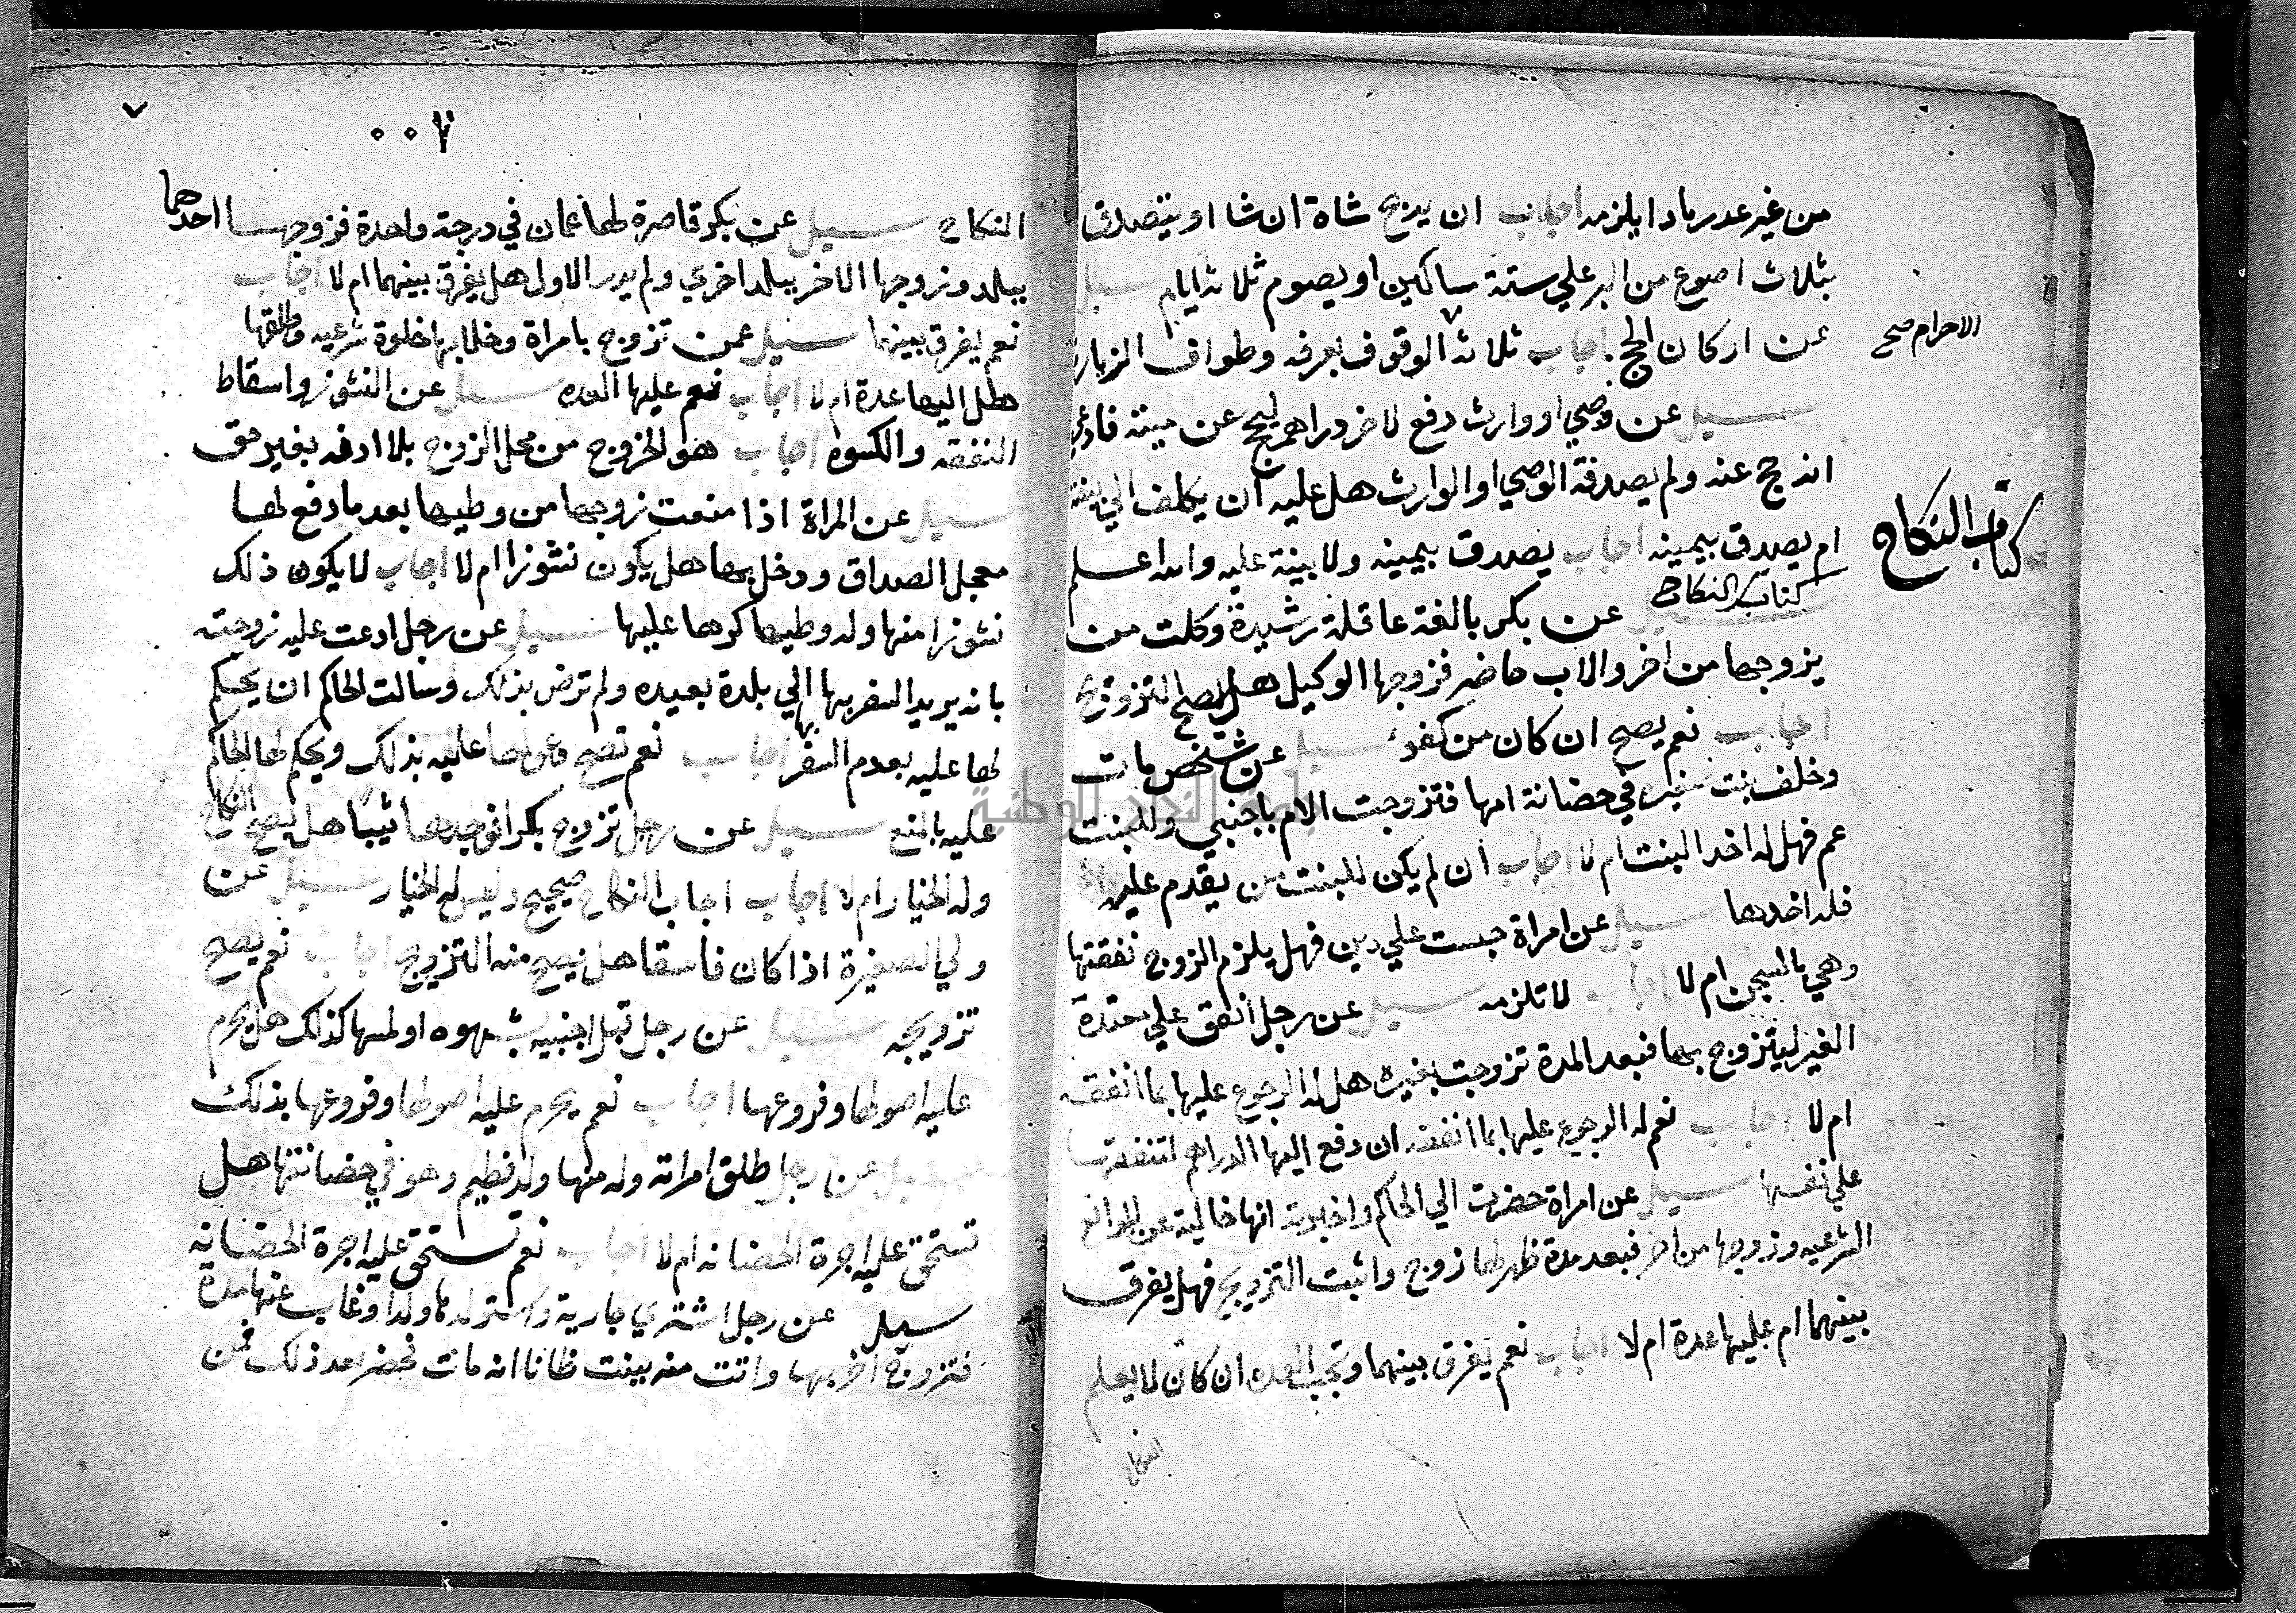 من غير عدر مادا يلزمه اجاب ان يدبح شاة ان شا او يتصدق
بثلاث اصوع من البر علي ستة مساكين او يصوم ثلاثة ايام سيل
عن اركان الحج اجاب ثلاثه الوقوف بعرفه وطواف الزيارة
الاحرام صح
سيل عن وصي او وارث دفع لاخر دراهم ليحج عن ميته فادعي
انه حج عنه ولم يصدقه الوصي او الوارث هل عليه ان يكلف الي بينة
ام يصدق بيمينه اجاب يصدق بيمينه ولا بينة عليه والله اعلم
كتاب النكاح
كتاب النكاح
سيل عن بكر بالغة عاقلة رشيدة وكلت من
يزوجها من اخر والاب حاضر فزوجها الوكيل هل يصح التزويج
اجاب نعم يصح ان كان من كفوء سيل عن شخص مات
وخلف بنت صغيره في حضانة امها فتزوجت الام باجنبي وللبنت
عم فهل له اخد البنت ام لا اجاب ان لم يكن للبنت من يقدم عليه
فله اخدها سيل عن امراة حبست علي دين فهل يلزم الزوج نفقتها
وهي بالسجن ام لا اجاب لا تلزمه سيل عن رجل انفق علي معتدة
الغير ليتزوج بها فبعد المدة تزوجت بغيره هل له الرجوع عليها بما انفقه
ام لا اجاب نعم له الرجوع عليها بما انفقه ان دفع اليها الدراهم لتنفقها
علي نفسها سيل عن امراة حضرت الي الحاكم واخبرت انها خالية عن الموانع
الشرعيه وزوجها من اخر فبعد مدة ظهر لها زوج واثبت التزويج فهل يفرق
بينهما ام عليها عدة ام لا اجاب نعم يفرق بينهما وتجب العده ان كان لا يعلم
النكاح
٧
٠٠٧
النكاح سيل عن بكر قاصرة لها عمان في درجة واحدة فزوجها احدهما
ببلد وزوجها الاخر ببلد اخري ولم يدر الاول هل يفرق بينهما ام لا اجاب
نعم يفرق بينهما سيل عمن تزوج بامراة وخلا بها خلوة شرعيه وطلقها
هل اليها عدة ام لا اجاب نعم عليها العده سيل عن النشوز واسقاط
النفقه والكسوه اجاب هو الخروج من محل الزوج بلا ادنه بغير حق
سيل عن المراة اذا منعت زوجها من وطيها بعد ما دفع لها
معجل الصداق ودخل بها هل يكون نشوزا ام لا اجاب لا يكون ذلك
نشوزا منها وله وطيها كرها عليها سيل عن رجل ادعت عليه زوجته
بانه يريد السفر بها الي بلدة بعيده ولم ترض بذلك وسالت الحاكم ان يحكم
لها عليه بعدم السفر بها اجاب نعم تصح دعواها عليه بذلك ويحكم لها الحاكم
عليه بالمنع سيل عن رجل تزوج بكرا فوجدها ثيبا هل يصح النكاح
وله الخيار ام لا اجاب اجاب النكاح صحيح وليس له الخيار سيل عن
ولي الصغيرة اذا كان فاسقا هل يصح منه التزويج اجاب نعم يصح
تزويجه سيل عن رجل قبل اجنبيه بشهوه او لمسها كذلك هل يحرم
عليه اصولها وفروعها اجاب نعم يحرم عليه اصولها وفروعها بذلك
سيل عن رجل طلق امراته وله منها ولد فطيم وهو في حضانتها هل
تستحق عليه اجرة الحضانه ام لا اجاب نعم تستحق عليه اجرة الحضانه
سيل عن رجل اشتري جارية واستولدها ولدا وغاب عنها مدة
فتزوج اخر بها واتت منه ببنت ظانا انه مات فحضر بعد ذلك فمن